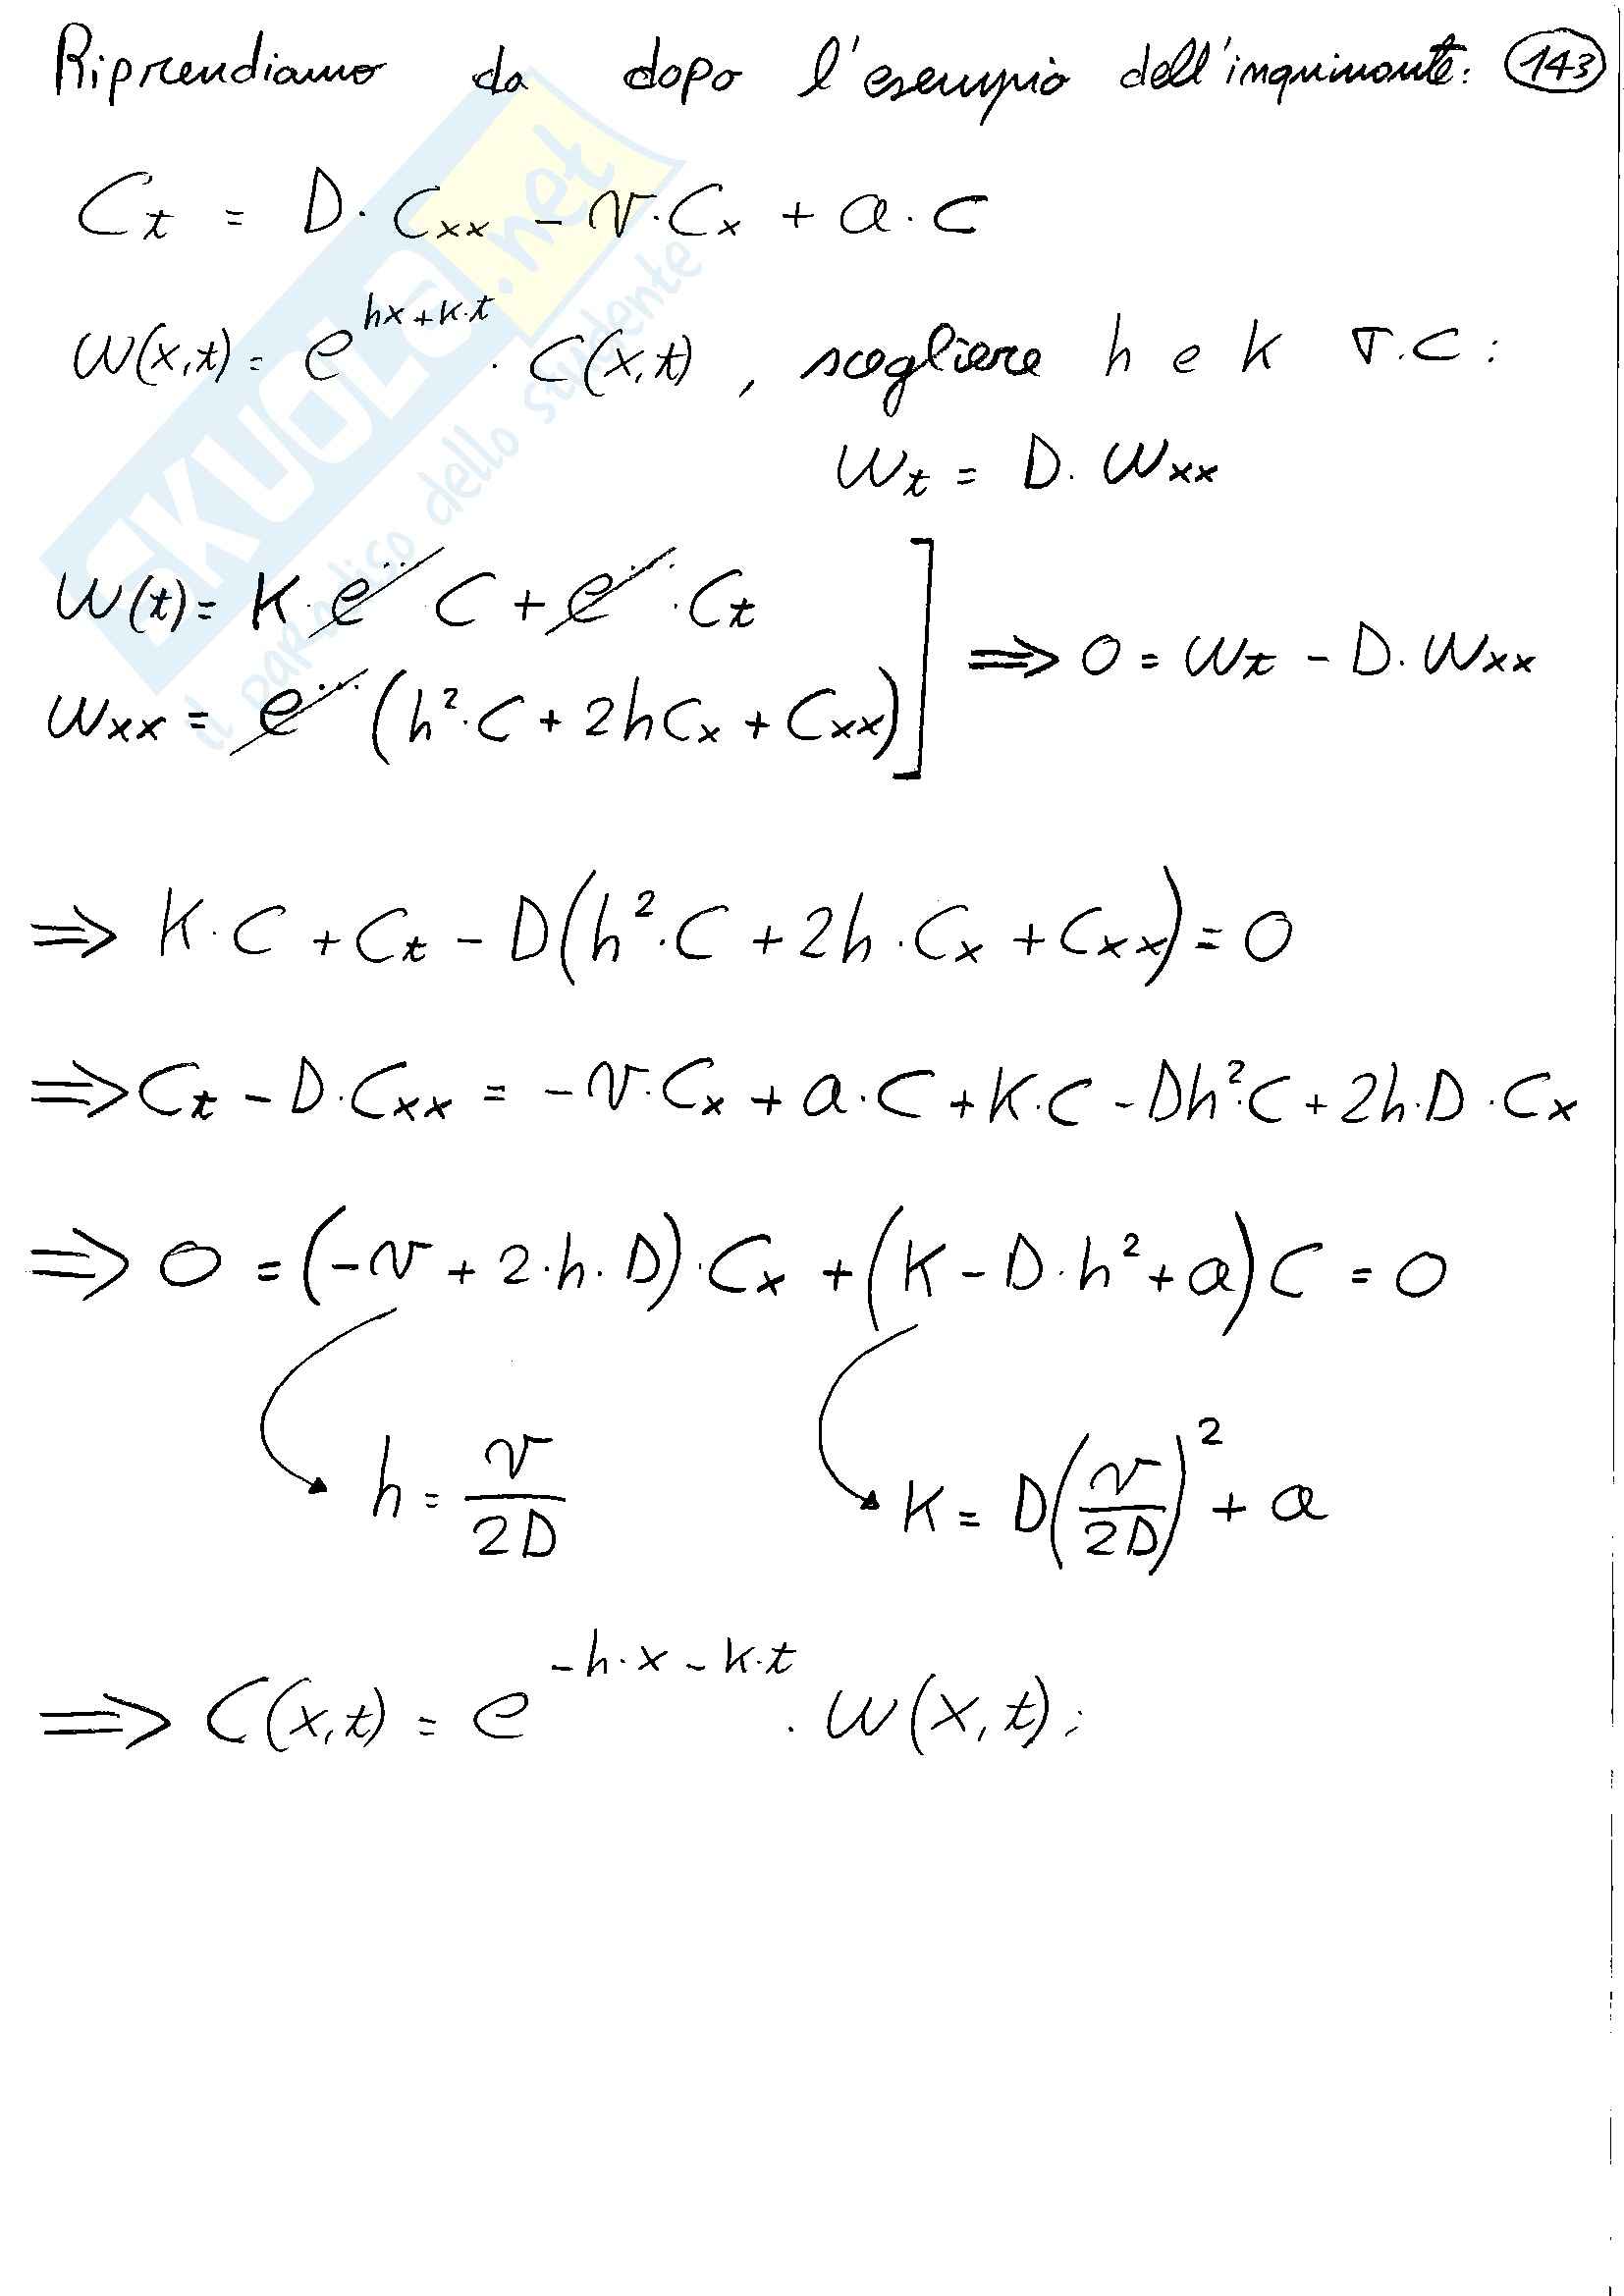 Riprendiamo da dopo l'esempio dell'inquinante: 143
C_t = D · C_xx - v · C_x + a · C
W(x,t) = e^{hx+k·t} · C(x,t), scegliere h e k T.C:
W_t = D · W_xx
W(t) = K · e^{...} C + e^{...} · C_t
W_xx = e^{...} (h² · C + 2hC_x + C_xx) ] ⇒ 0 = W_t - D · W_xx
⇒ K · C + C_t - D(h² · C + 2h · C_x + C_xx) = 0
⇒ C_t - D · C_xx = -v · C_x + a · C + K · C - Dh² · C + 2h · D · C_x
⇒ 0 = (-v + 2 · h · D) · C_x + (K - D · h² + a) C = 0
h = v/2D K = D(v/2D)² + a
⇒ C(x,t) = e^{-h·x-k·t} · W(x,t);
SKUOLA.net
il paradiso dello studente